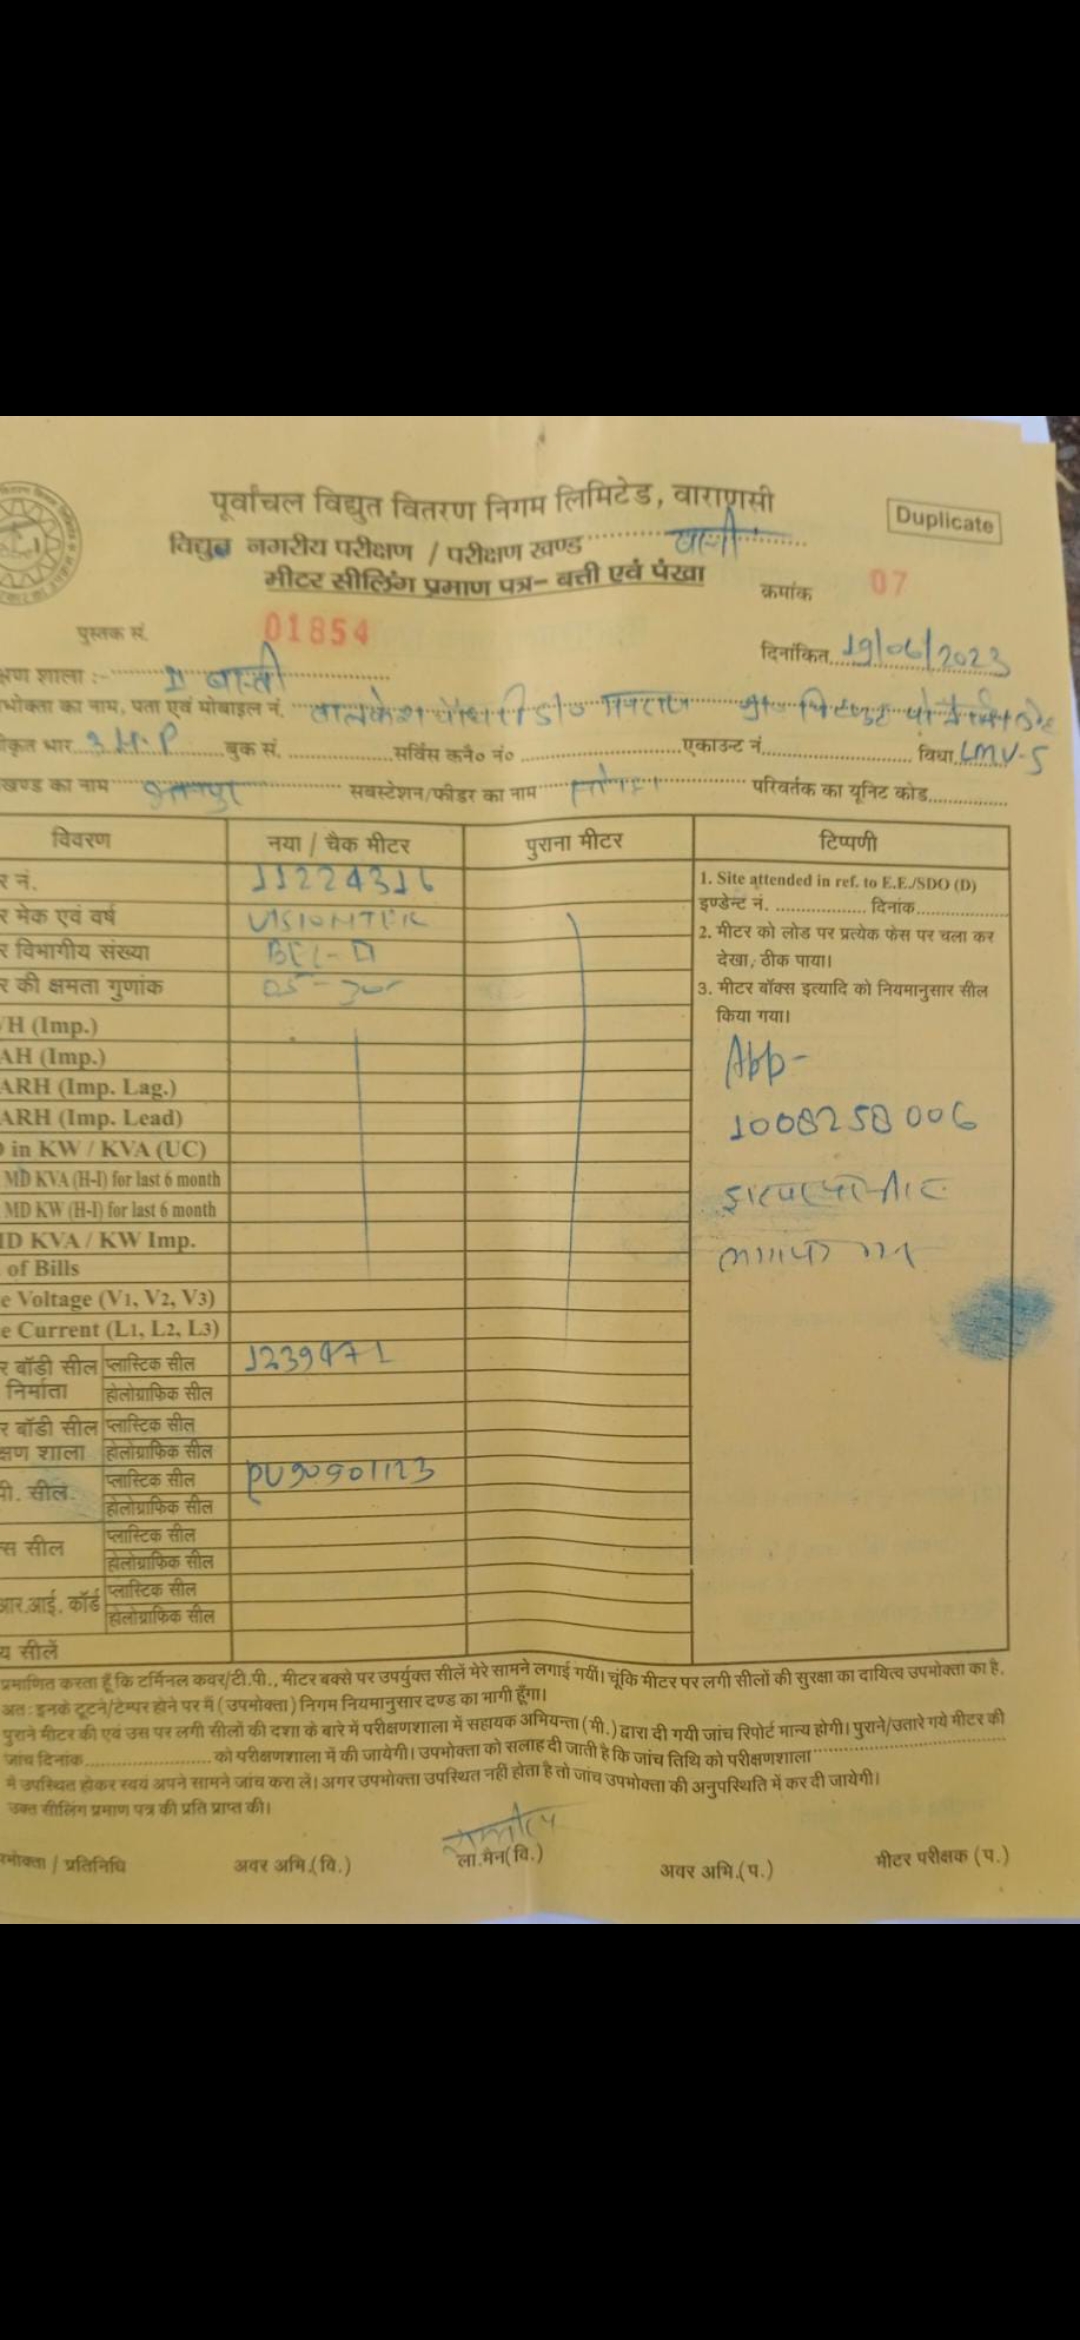 पूर्वांचल विद्युत वितरण निगम लिमिटेड, वाराणसी
Duplicate
विद्युत नगरीय परीक्षण / परीक्षण खण्ड
मीटर सीलिंग प्रमाण पत्र- बत्ती एवं पंखा
क्रमांक 07
पुस्तक सं. 01854
दिनांकित 19/06/2023
क्षण शाला :-
भोक्ता का नाम, पता एवं मोबाइल नं.
कृत भार 3 H.P बुक सं. सर्विस कनै० नं० एकाउन्ट नं. विधा LMV-5
खण्ड का नाम सबस्टेशन/फीडर का नाम परिवर्तक का यूनिट कोड
विवरण नया / चैक मीटर पुराना मीटर टिप्पणी
र नं. 11224316
र मेक एवं वर्ष VISIONTEK
र विभागीय संख्या
र की क्षमता गुणांक
1. Site attended in ref. to E.E./SDO (D)
इण्डेन्ट नं. दिनांक
2. मीटर को लोड पर प्रत्येक फेस पर चला कर
देखा, ठीक पाया।
3. मीटर बॉक्स इत्यादि को नियमानुसार सील
किया गया।
H (Imp.)
AH (Imp.)
ARH (Imp. Lag.)
ARH (Imp. Lead)
in KW / KVA (UC)
MD KVA (H-I) for last 6 month
MD KW (H-I) for last 6 month
ID KVA / KW Imp.
of Bills
e Voltage (V1, V2, V3)
e Current (L1, L2, L3)
App-
1008258006
र बॉडी सील प्लास्टिक सील 1239471
निर्माता होलोग्राफिक सील
र बॉडी सील प्लास्टिक सील
क्षण शाला होलोग्राफिक सील
पी. सील. प्लास्टिक सील PU90901123
होलोग्राफिक सील
स सील प्लास्टिक सील
होलोग्राफिक सील
आर.आई. कॉर्ड प्लास्टिक सील
होलोग्राफिक सील
य सीलें
प्रमाणित करता हूँ कि टर्मिनल कवर/टी.पी., मीटर बक्से पर उपर्युक्त सीलें मेरे सामने लगाई गयीं। चूंकि मीटर पर लगी सीलों की सुरक्षा का दायित्व उपभोक्ता का है,
अतः इनके टूटने/टेम्पर होने पर मैं (उपभोक्ता) निगम नियमानुसार दण्ड का भागी हूँगा।
पुराने मीटर की एवं उस पर लगी सीलों की दशा के बारे में परीक्षणशाला में सहायक अभियन्ता (मी.) द्वारा दी गयी जांच रिपोर्ट मान्य होगी। पुराने/उतारे गये मीटर की
जांच दिनांक को परीक्षणशाला में की जायेगी। उपभोक्ता को सलाह दी जाती है कि जांच तिथि को परीक्षणशाला
में उपस्थित होकर स्वयं अपने सामने जांच करा लें। अगर उपभोक्ता उपस्थित नहीं होता है तो जांच उपभोक्ता की अनुपस्थिति में कर दी जायेगी।
उक्त सीलिंग प्रमाण पत्र की प्रति प्राप्त की।
भोक्ता / प्रतिनिधि अवर अभि.(वि.) ला.मैन(वि.) अवर अभि.(प.) मीटर परीक्षक (प.)